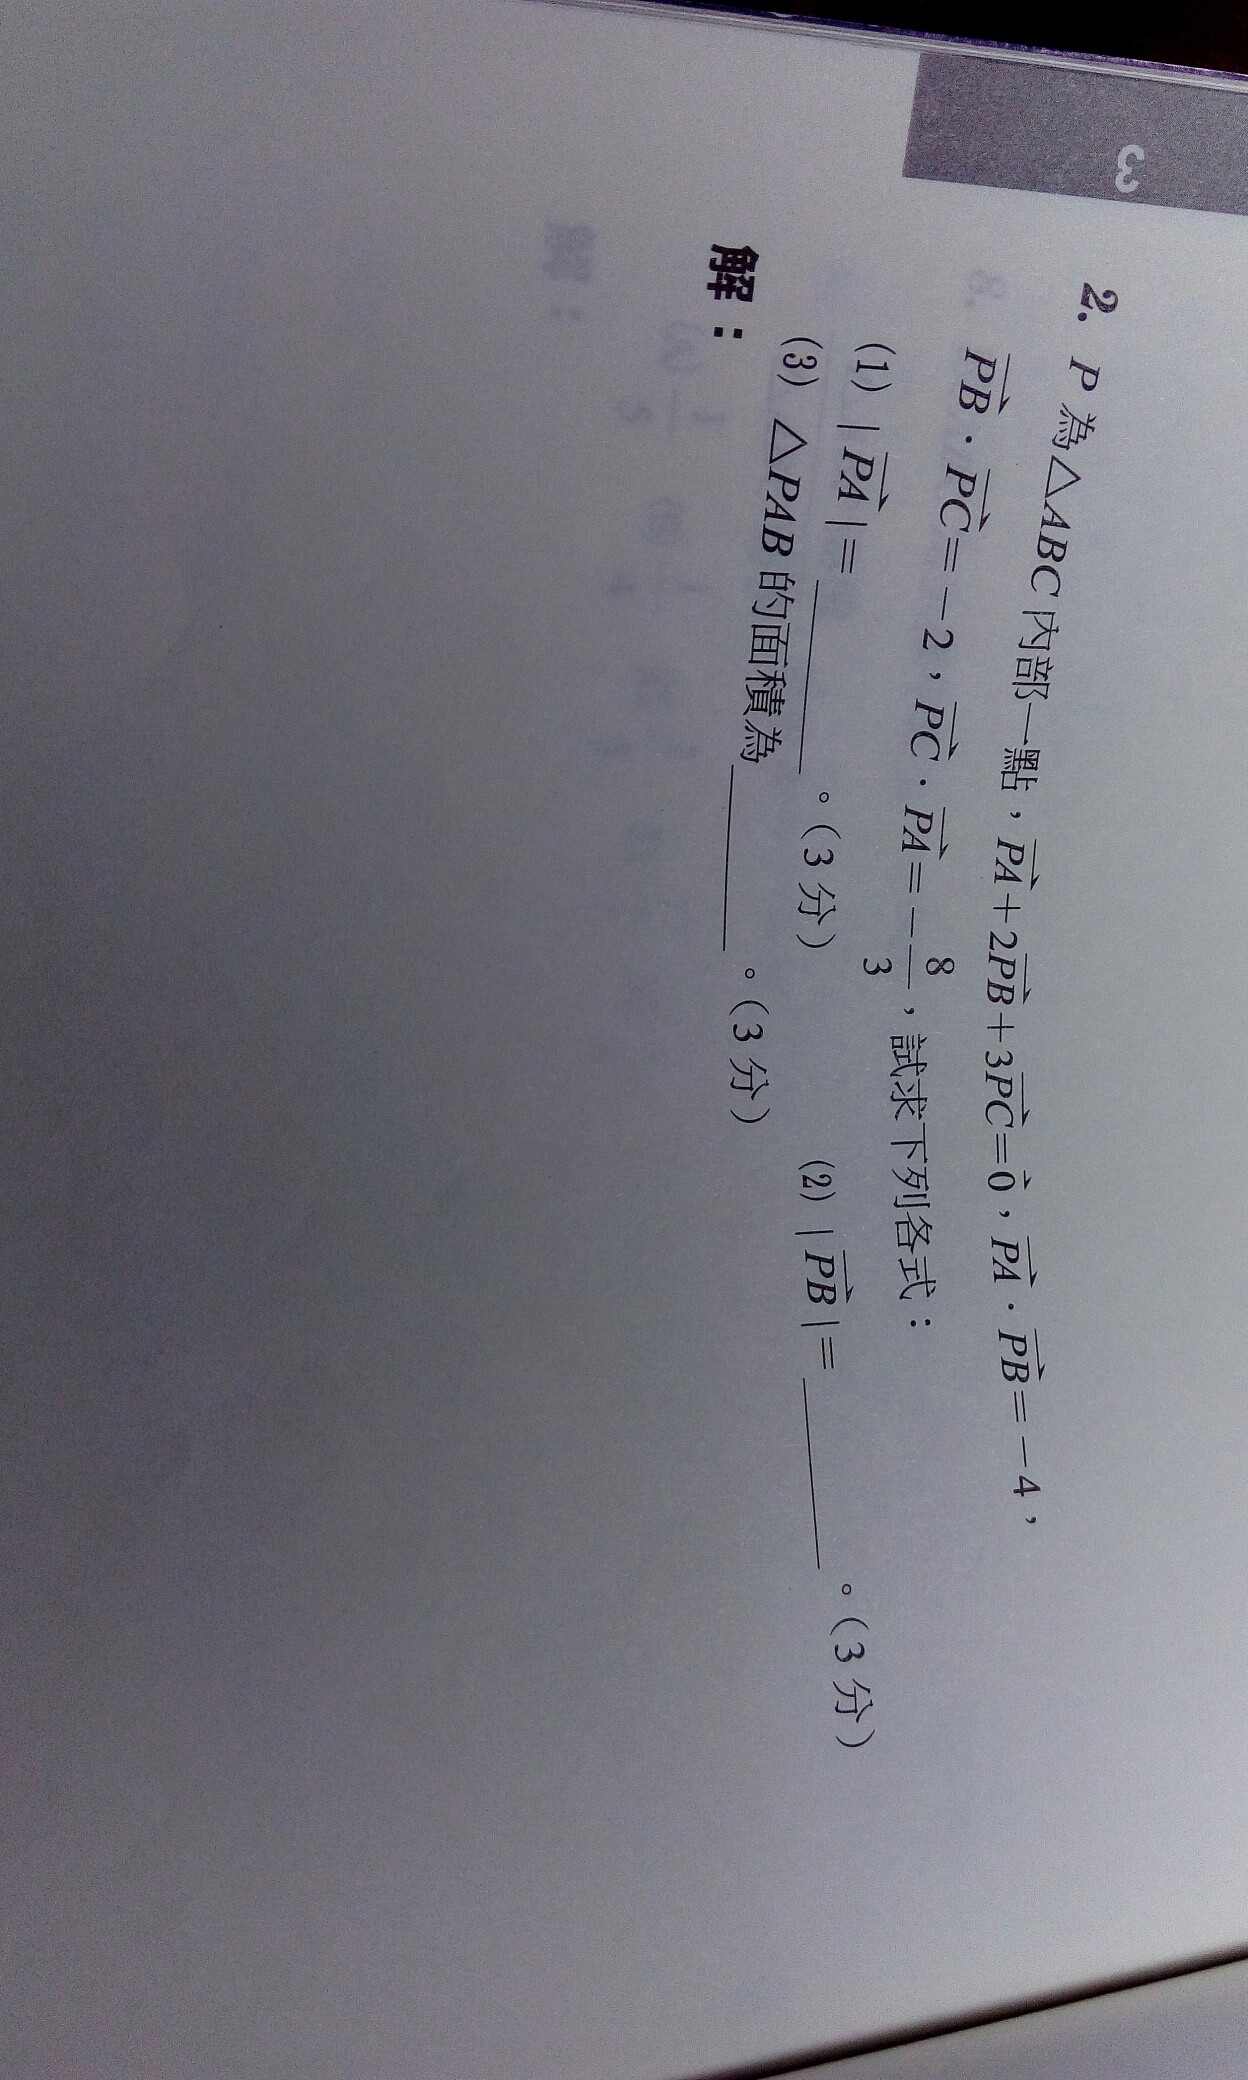 3
2. P 為△ABC 內部一點，$\overrightarrow{PA}+2\overrightarrow{PB}+3\overrightarrow{PC}=\vec{0}$，$\overrightarrow{PA}\cdot\overrightarrow{PB}=-4$，
$\overrightarrow{PB}\cdot\overrightarrow{PC}=-2$，$\overrightarrow{PC}\cdot\overrightarrow{PA}=-\frac{8}{3}$，試求下列各式：
(1) $|\overrightarrow{PA}|=$ ________。(3 分) (2) $|\overrightarrow{PB}|=$ ________。(3 分)
(3) △PAB 的面積為 ________。(3 分)
解：